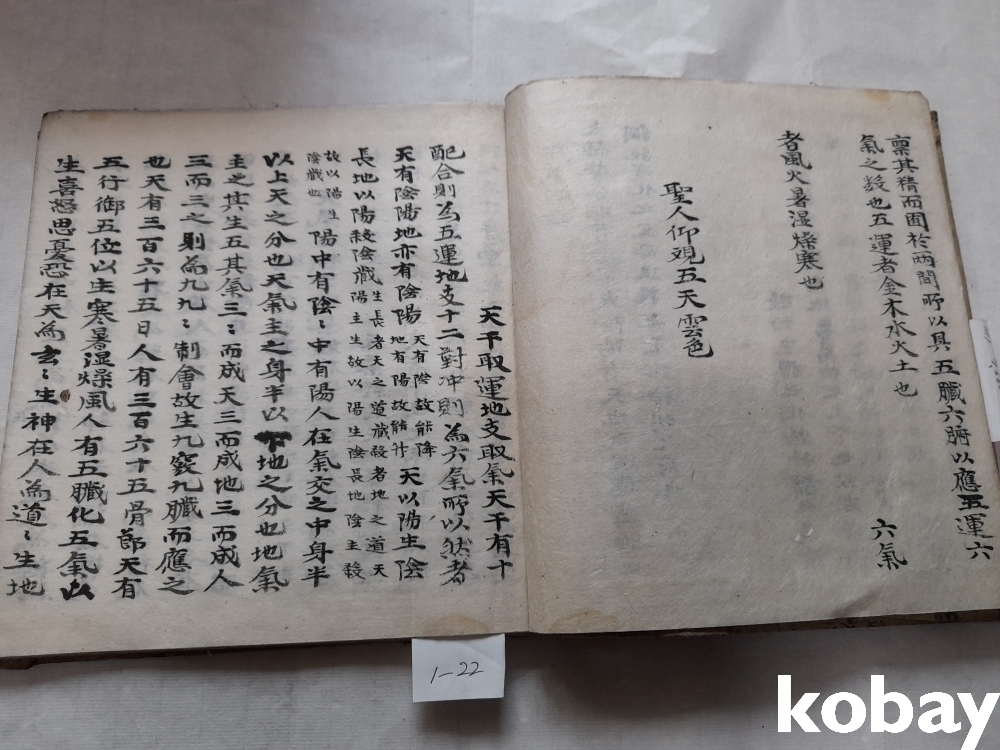 稟其精而囿於兩間所以具五臟六腑以應五運六
氣之數也五運者金木水火土也 六氣
者風火暑湿燥寒也
聖人仰观五天雲色
天干取運地支取氣天干有十
配合則為五運地支十二對冲則為六氣所以然者
天有陰陽地亦有陰陽 天有陰故能降 地有陽故能升 天以陽生陰
長地以陽殺陰藏 生長者天之道藏殺者地之道天 陽主生故以陽生陰長地陰主殺
故以陽生 陰藏也 陽中有陰〻中有陽人在氣交之中身半
以上天之分也天氣主之身半以下地之分也地氣
主之其生五其氣三〻而成天三而成地三而成人
三而三之則為九九〻制會故生九竅九臟而應之
也天有三百六十五日人有三百六十五骨節天有
五行御五位以生寒暑湿燥風人有五臟化五氣以
生喜怒思憂恐在天為玄〻生神在人為道〻生地
1-22
kobay